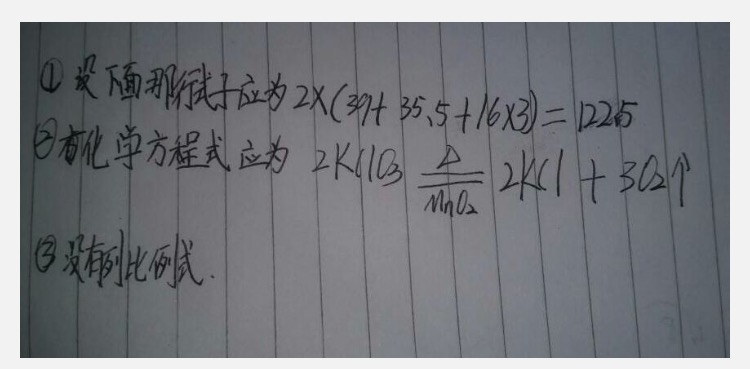 ① 设下面那行式子应为 2×(39+35.5+16×3)=122.5
② 有化学方程式应为 2KClO3 =△/MnO2= 2KCl + 3O2↑
③ 没有列比例式.